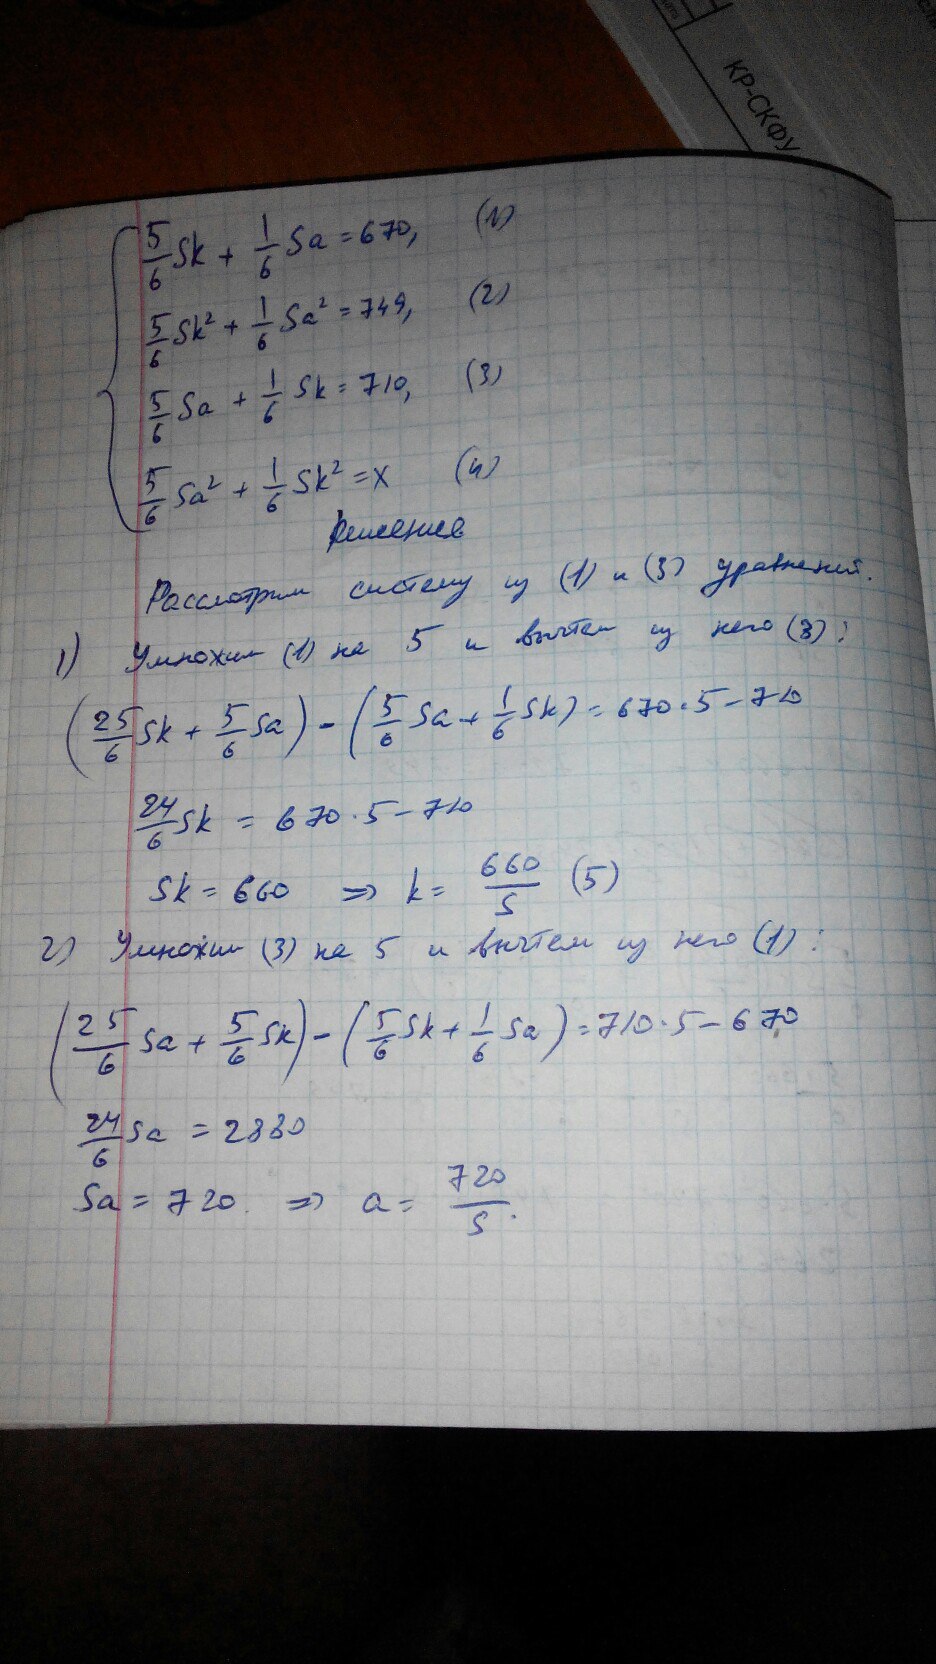 КР-СКФУ
5/6 Sk + 1/6 Sa = 670, (1)
5/6 Sk² + 1/6 Sa² = 749, (2)
5/6 Sa + 1/6 Sk = 710, (3)
5/6 Sa² + 1/6 Sk² = x (4)
Решение
Рассмотрим систему из (1) и (3) уравнений.
1) Умножим (1) на 5 и вычтем из него (3):
(25/6 Sk + 5/6 Sa) - (5/6 Sa + 1/6 Sk) = 670·5-710
24/6 Sk = 670·5-710
Sk = 660 => k = 660/S (5)
2) Умножим (3) на 5 и вычтем из него (1):
(25/6 Sa + 5/6 Sk) - (5/6 Sk + 1/6 Sa) = 710·5-670
24/6 Sa = 2880
Sa = 720. => a = 720/S.